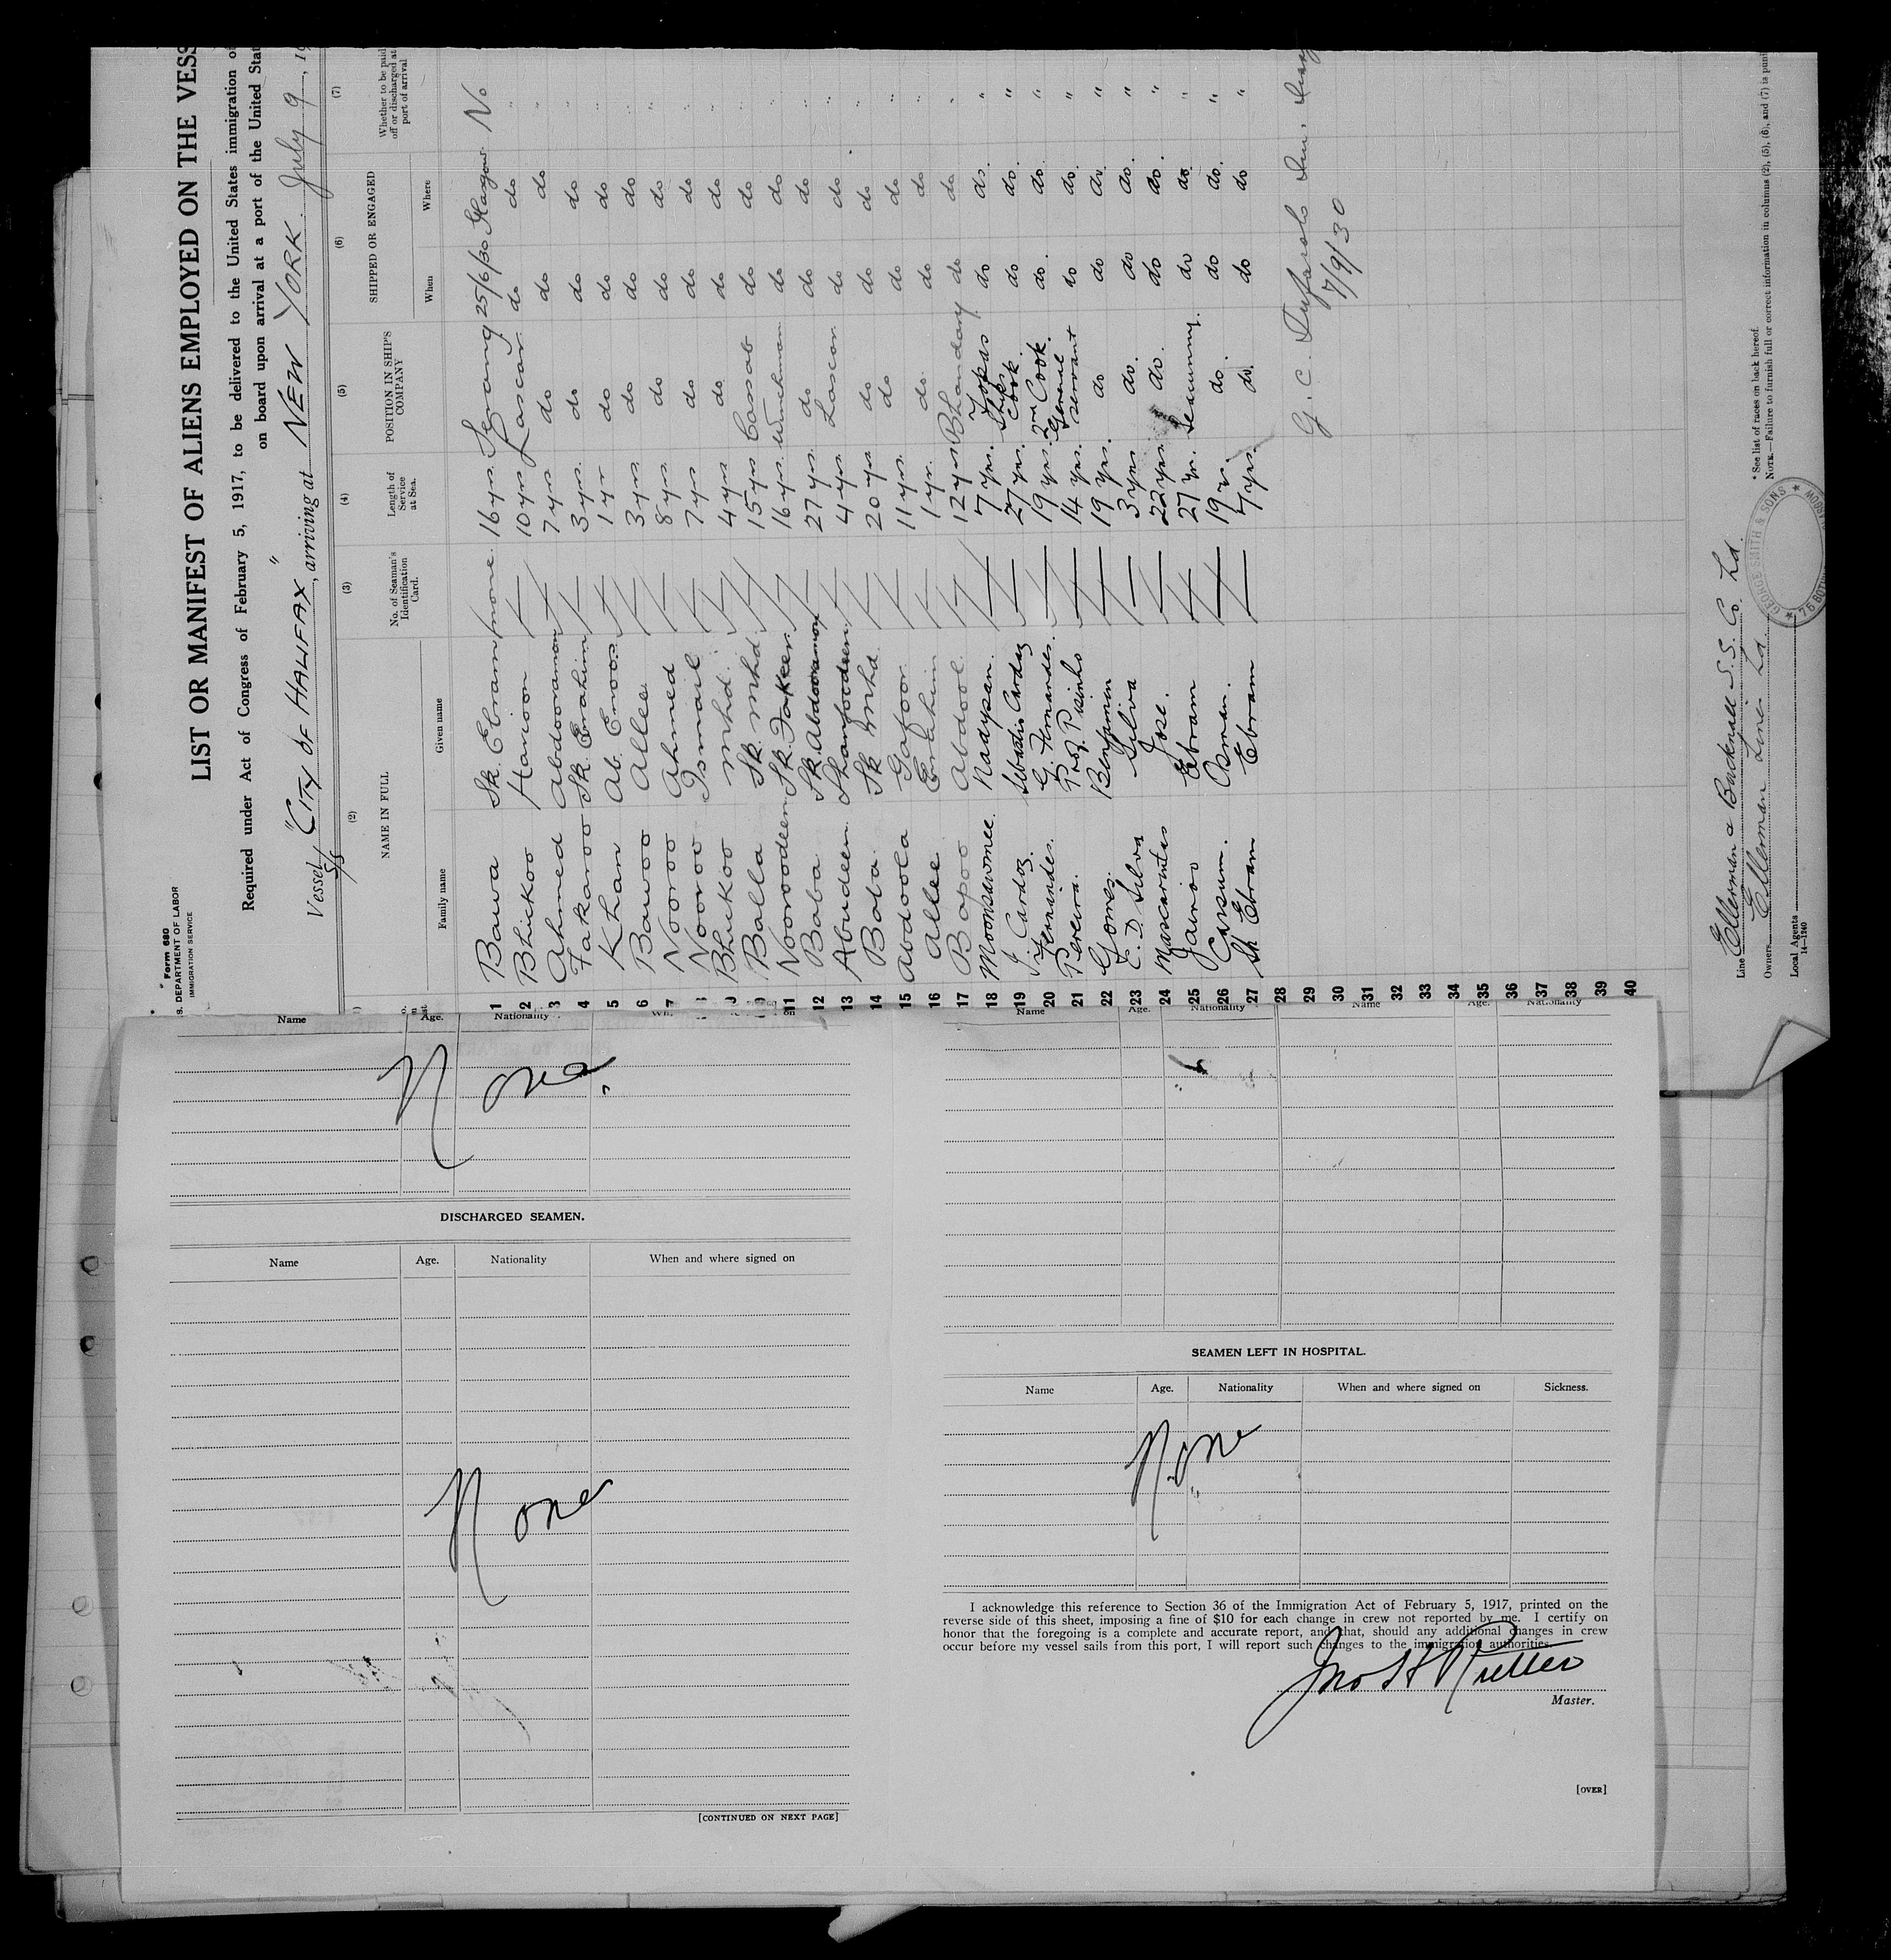 Form 680
S. DEPARTMENT OF LABOR
IMMIGRATION SERVICE
LIST OR MANIFEST OF ALIENS EMPLOYED ON THE VESS
Required under Act of Congress of February 5, 1917, to be delivered to the United States immigration
on board upon arrival at a port of the United Stat
Vessel S/S "CITY OF HALIFAX", arriving at NEW YORK. July 9, 19
(2) (3) (4) (5) (6) (7)
NAME IN FULL No. of Seaman's Identification Card. Length of Service at Sea. POSITION IN SHIP'S COMPANY SHIPPED OR ENGAGED Whether to be paid off or discharged at port of arrival
Family name Given name When Where
1 Bawa Sk. Ebram none 16 yrs. Serang 25/6/30 Glasgow No
2 Bhickoo Haroon 10 yrs Lascar do do "
3 Ahmed Abdooramon 7 yrs do do do "
4 Fakaroo Sk. Erahim 3 yrs. do do do "
5 Khan Ab. 1 yr do do do "
6 Bawoo Allee 3 yrs do do do "
7 Nooroo Ahmed 8 yrs do do do "
8 Nooroo Ismail 7 yrs do do do "
9 Bhukoo Mhd. 4 yrs do do do "
10 Balla Sk. Mhd. 15 yrs Cassab do do "
11 Nooroodeen Sk. Fakeer 16 yrs. Winchman do do "
12 Baba Sk. Abdooramon 27 yrs. do do do "
13 Abudeen Shamfoodeen 4 yrs. Lascar do do "
14 Baba Sk Mhd. 20 yrs do do do "
15 Abdoola Gafoor 11 yrs. do do do "
16 Allee Erahim 1 yr. do do do "
17 Bapoo Abdool 12 yrs Bhandary do do "
18 Moonsawmee Nadysan. 7 yrs. Topas do do. "
19 J. Cardoz. Sebastio Cardoz 27 yrs. Ships Cook. do do. "
20 Fernandes. G. Fernandes. 19 yrs. 2nd Cook. do. do. "
21 Pereira. 14 yrs. General servant do do. "
22 Gomes. Benjamin 19 yrs. do do do. "
23 C. D. Silva Silva 3 yrs. do. do do. "
24 Mascarintes Jose. 22 yrs. do. do do. "
25 Ebram 27 yr. Seacunny. do do. "
26 Cassum. Osman. 19 yr. do. do do. "
27 Sk Ebram Ebram 7 yrs. do. do do "
28
29
30
31
32
33
34
35
36
37
38
39
40
G. C.
7/9/30
* See list of races on back hereof.
NOTE.—Failure to furnish full or correct information in columns (2), (5), (6), and (7) is puni
Line Ellerman & Bucknall S.S. Co. Ld.
Owners Ellerman Lines Ld.
Local Agents
14—1240
GEORGE SMITH & SONS
Name Age. Nationality
None.
DISCHARGED SEAMEN.
Name Age. Nationality When and where signed on
None
[CONTINUED ON NEXT PAGE]
Name Age. Nationality Name Age. Nationality
SEAMEN LEFT IN HOSPITAL.
Name Age. Nationality When and where signed on Sickness.
None
I acknowledge this reference to Section 36 of the Immigration Act of February 5, 1917, printed on the
reverse side of this sheet, imposing a fine of $10 for each change in crew not reported by me. I certify on
honor that the foregoing is a complete and accurate report, and that, should any additional changes in crew
occur before my vessel sails from this port, I will report such changes to the immigration authorities.
Jno H Rutter
Master.
[OVER]